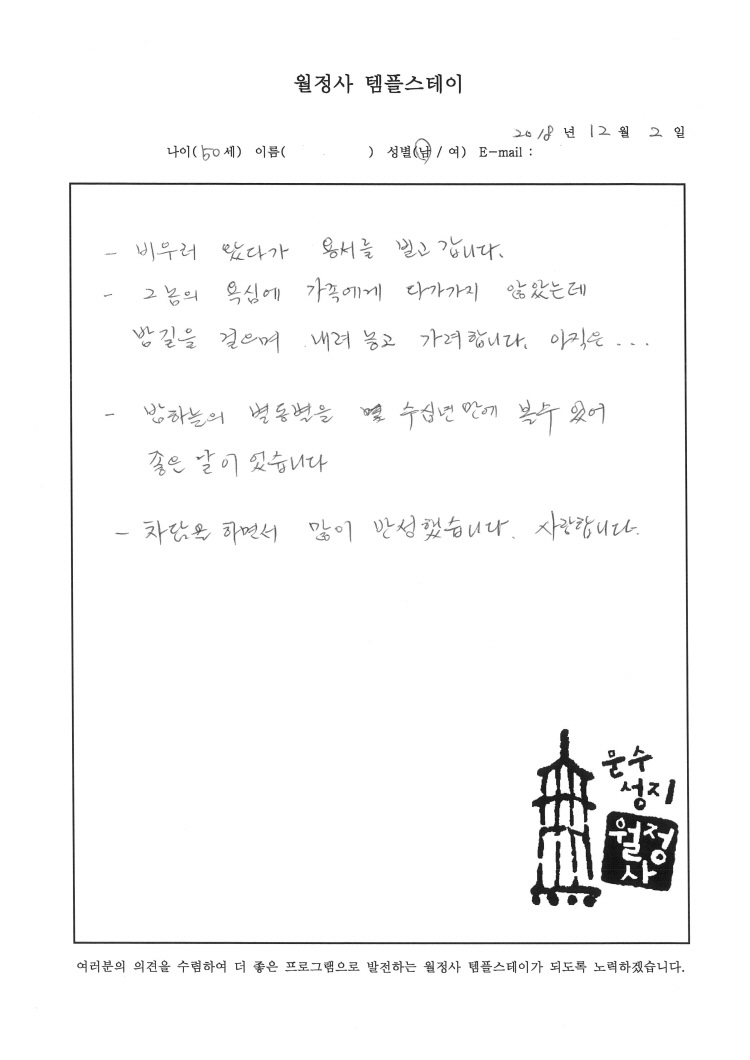 월정사 템플스테이
2018 년 12 월 2 일
나이( 50 세) 이름( ) 성별(남 / 여) E-mail :
- 비우러 왔다가 용서를 빌고 갑니다.
- 그놈의 욕심에 가족에게 다가가지 않았는데
밤길을 걸으며 내려 놓고 가려합니다. 아직은 ...
- 밤하늘의 별똥별을 몇 수십년 만에 볼수 있어
좋은 날이 었습니다
- 차담을 하면서 많이 반성했습니다. 사랑합니다.
문수
성지
월정
사
여러분의 의견을 수렴하여 더 좋은 프로그램으로 발전하는 월정사 템플스테이가 되도록 노력하겠습니다.